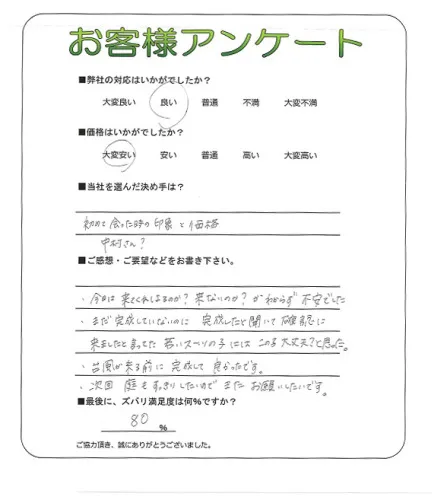 お客様アンケート
■弊社の対応はいかがでしたか？
大変良い 良い 普通 不満 大変不満
■価格はいかがでしたか？
大変安い 安い 普通 高い 大変高い
■当社を選んだ決め手は？
初めて会った時の印象と価格
中村さん？
■ご感想・ご要望などをお書き下さい。
・今日は来てくれるのか？来ないのか？がわからず不安でした
・まだ完成していないのに 完成したと聞いて確認に
来ましたと言ってた 若いスーツの子には この子大丈夫？と思った。
・台風が来る前に完成して良かったです。
・次回 庭もすっきりしたいので またお願いしたいです。
■最後に、ズバリ満足度は何％ですか？
80 %
ご協力頂き、誠にありがとうございました。